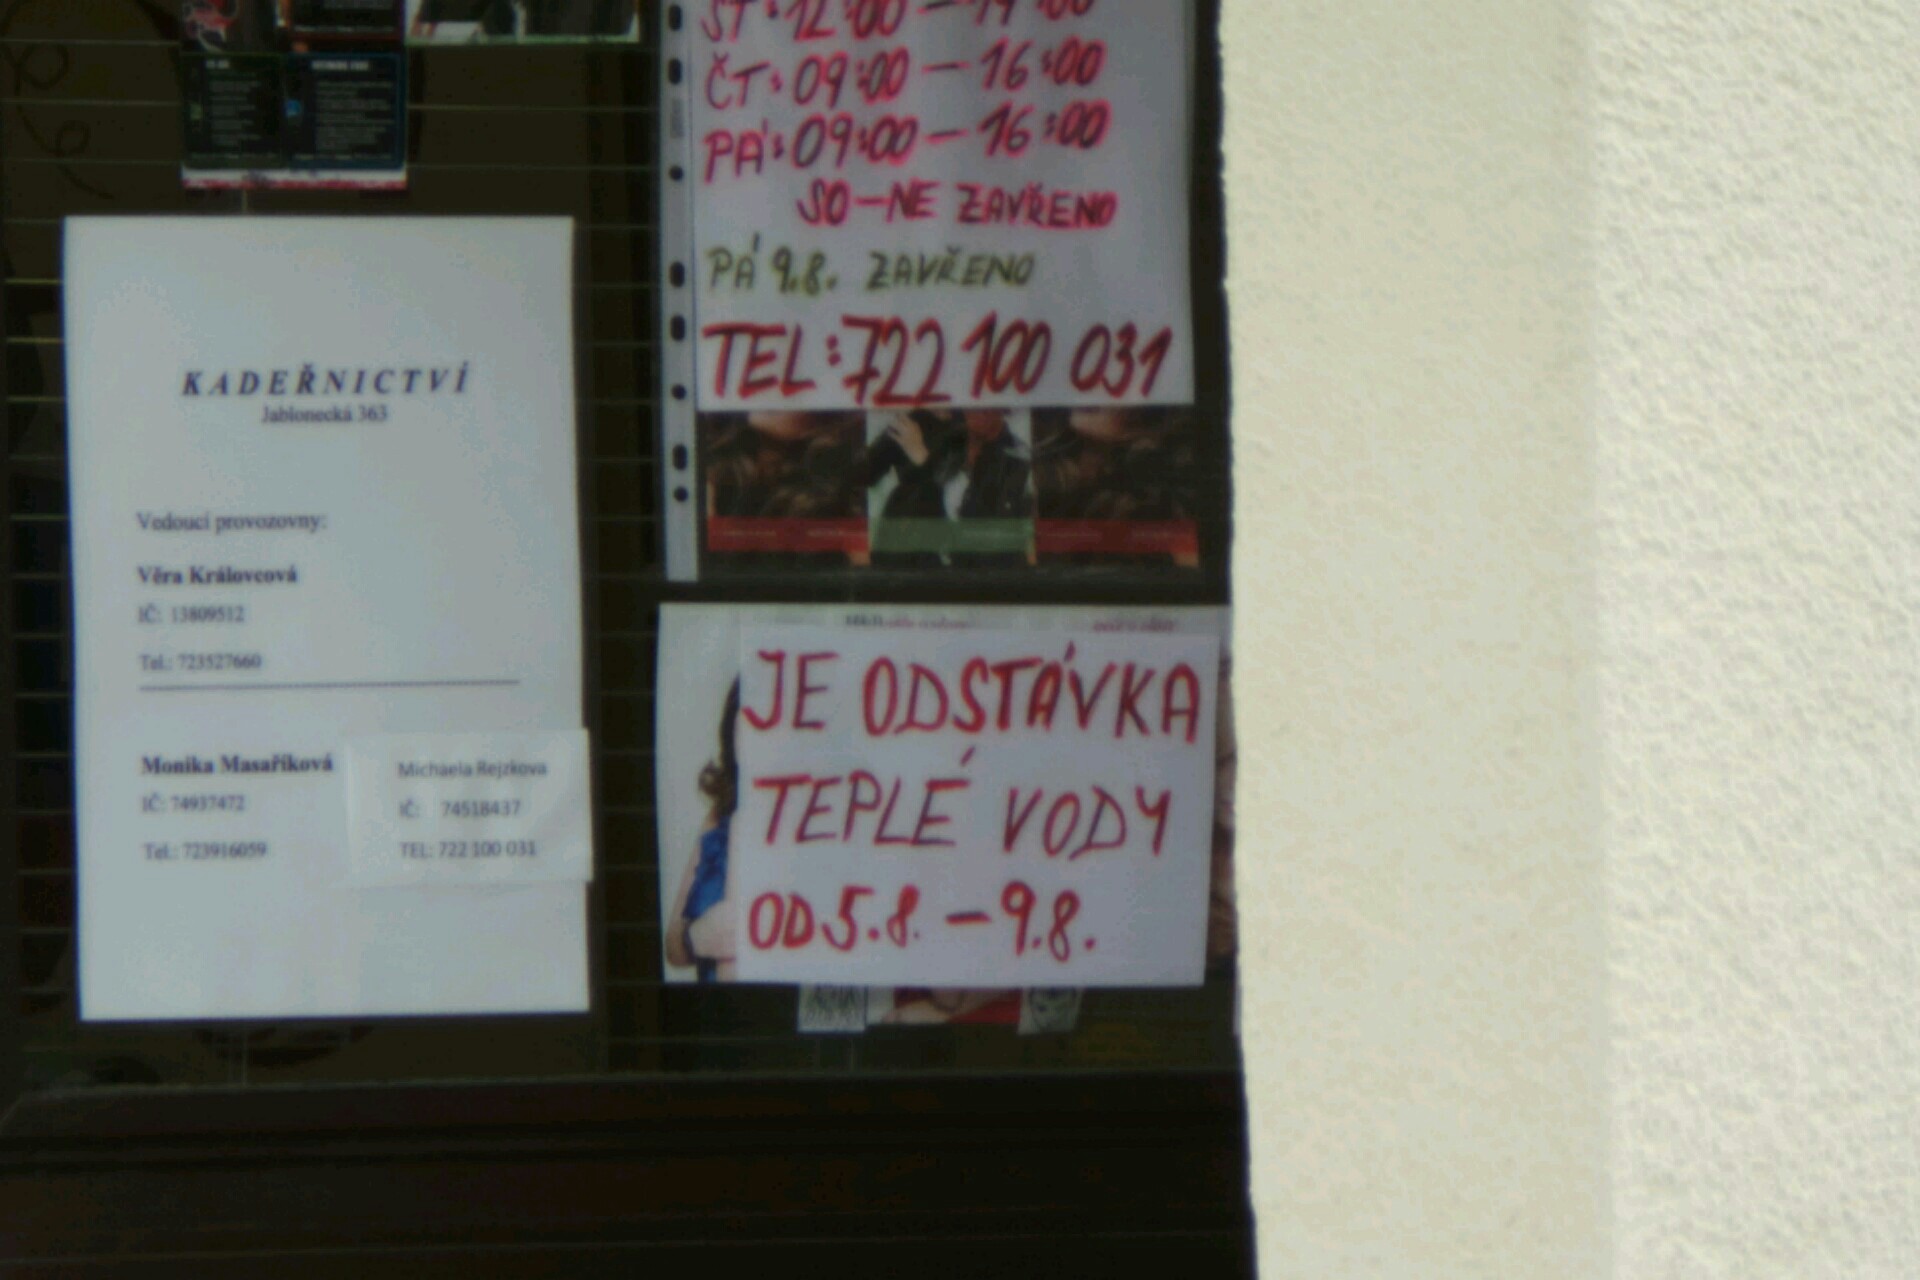 KADEŘNICTVÍ
Jablonecká 363
Vedoucí provozovny:
Věra Královcová
IČ: 13809512
Tel.: 723527660
Monika Masaříková
IČ: 74937472
Tel.: 723916059
Michaela Rejzkova
IČ: 74518437
TEL: 722 100 031
ST: 12:00 - 19:00
ČT: 09:00 - 16:00
PÁ: 09:00 - 16:00
SO-NE ZAVŘENO
PÁ 9.8. ZAVŘENO
TEL: 722 100 031
JE ODSTÁVKA
TEPLÉ VODY
OD 5.8. - 9.8.